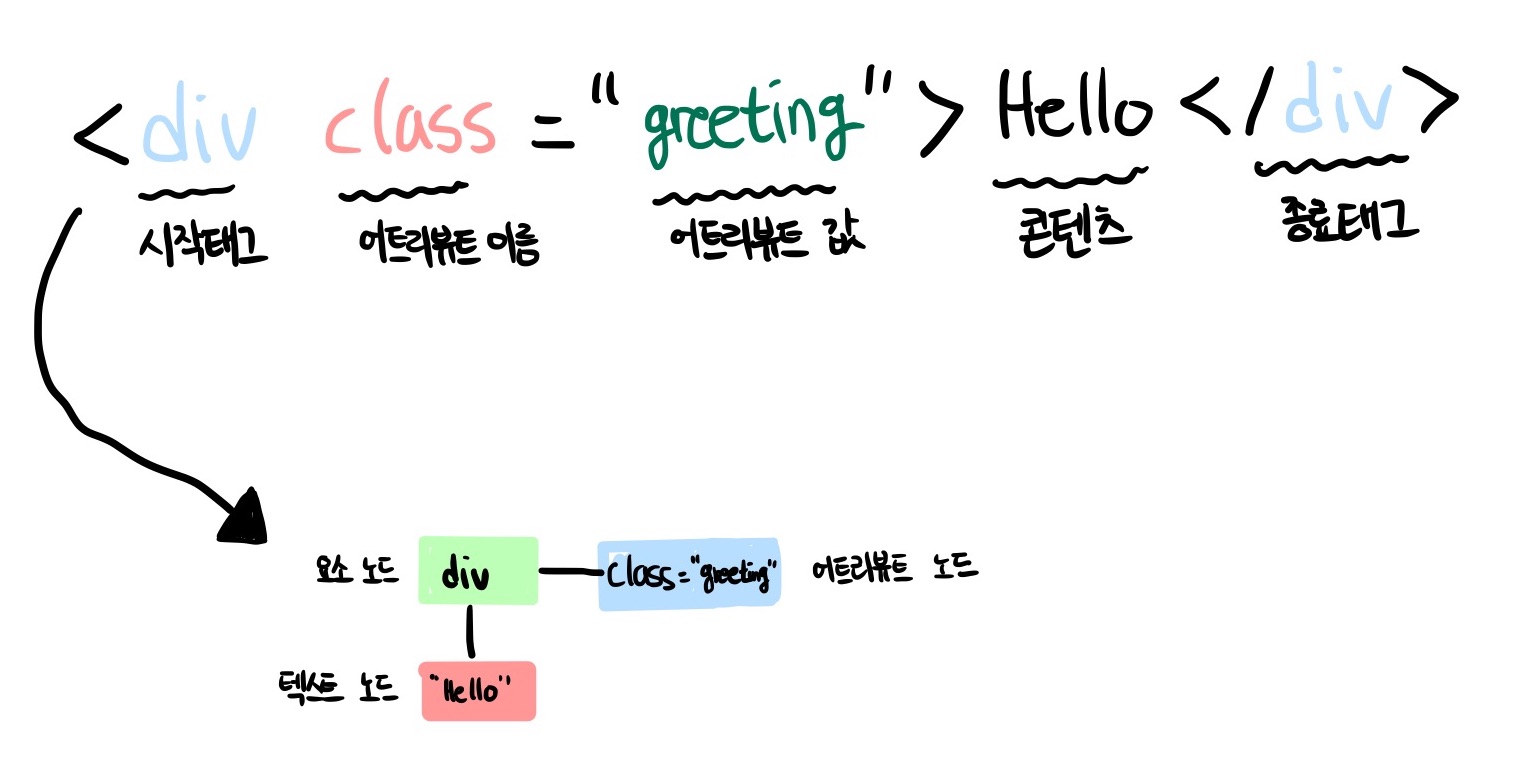 <div class="greeting">Hello</div>
시작태그 어트리뷰트 이름 어트리뷰트 값 콘텐츠 종료태그
요소 노드 div class="greeting" 어트리뷰트 노드
텍스트 노드 "Hello"